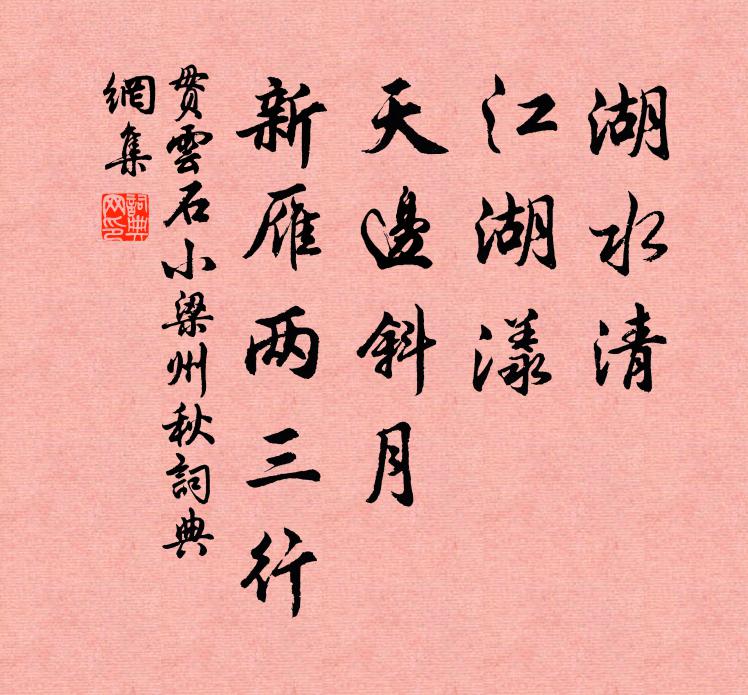 湖水清
江湖漾
天邊斜月
新雁两三行
贯雲石小梁州秋詞典
網集
詞典网印